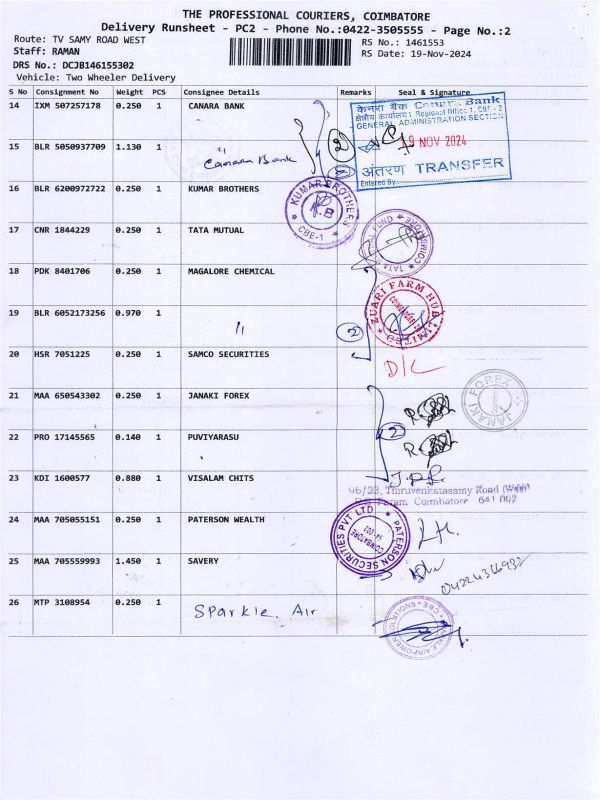 THE PROFESSIONAL COURIERS, COIMBATORE
Delivery Runsheet - PC2 - Phone No.:0422-3505555 - Page No.:2
Route: TV SAMY ROAD WEST
RS No.: 1461553
Staff: RAMAN
RS Date: 19-Nov-2024
DRS No.: DCJB146155302
Vehicle: Two Wheeler Delivery
S No Consignment No Weight PCS Consignee Details Remarks Seal & Signature
14 IXM 507257178 0.250 1 CANARA BANK
केनरा बैंक Canara Bank
GENERAL ADMINISTRATION SECTION
19 NOV 2024
अंतरण TRANSFER
Entered By
15 BLR 5050937709 1.130 1 Canara Bank 2
16 BLR 6200972722 0.250 1 KUMAR BROTHERS
KUMAR BROTHERS
K.B
CBE-1
17 CNR 1844229 0.250 1 TATA MUTUAL
18 PDK 8401706 0.250 1 MAGALORE CHEMICAL
ZUARI FARM HUB LIMITED
19 BLR 6052173256 0.970 1 〃 2
20 HSR 7051225 0.250 1 SAMCO SECURITIES D/L
21 MAA 650543302 0.250 1 JANAKI FOREX
JANAKI FOREX
22 PRO 17145565 0.140 1 PUVIYARASU 2
23 KDI 1600577 0.880 1 VISALAM CHITS
96/23, Thiruvenkatasamy Road (West)
R.S. Puram Coimbatore 641 002
24 MAA 705055151 0.250 1 PATERSON WEALTH
PATERSON SECURITIES PVT LTD
COIMBATORE
25 MAA 705559993 1.450 1 SAVERY
26 MTP 3108954 0.250 1 Sparkle. Air